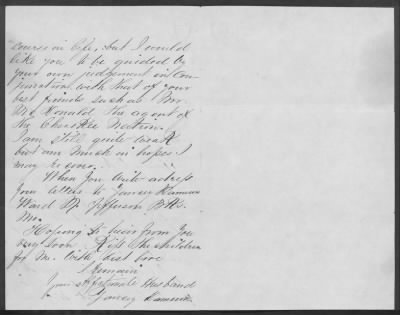 course in life, but I would
like you to be guided by
your own judgement in con-
junction with that of your
best friends such as Mr.
McDonald the agent of
the Cherokee Nation.
I am still quite weak
but am much in hopes I
may recover.
When you write adress
your letters to
Ward Jefferson Bks.
Mo.
Hoping to hear from you
very soon. Kiss the children
for me. With best love
I remain
Your affectionate Husband